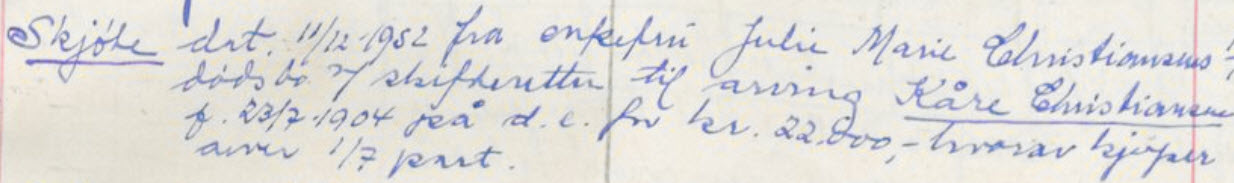 Skjöte dat. 11/12-1952 fra enkefru Julie Marie Christiansens
dødsbo v/ skifteretten til arving Kåre Christiansen
f. 23/7-1904 på d.e. for kr. 22.000,- hvorav kjøper
arver 1/7 part.